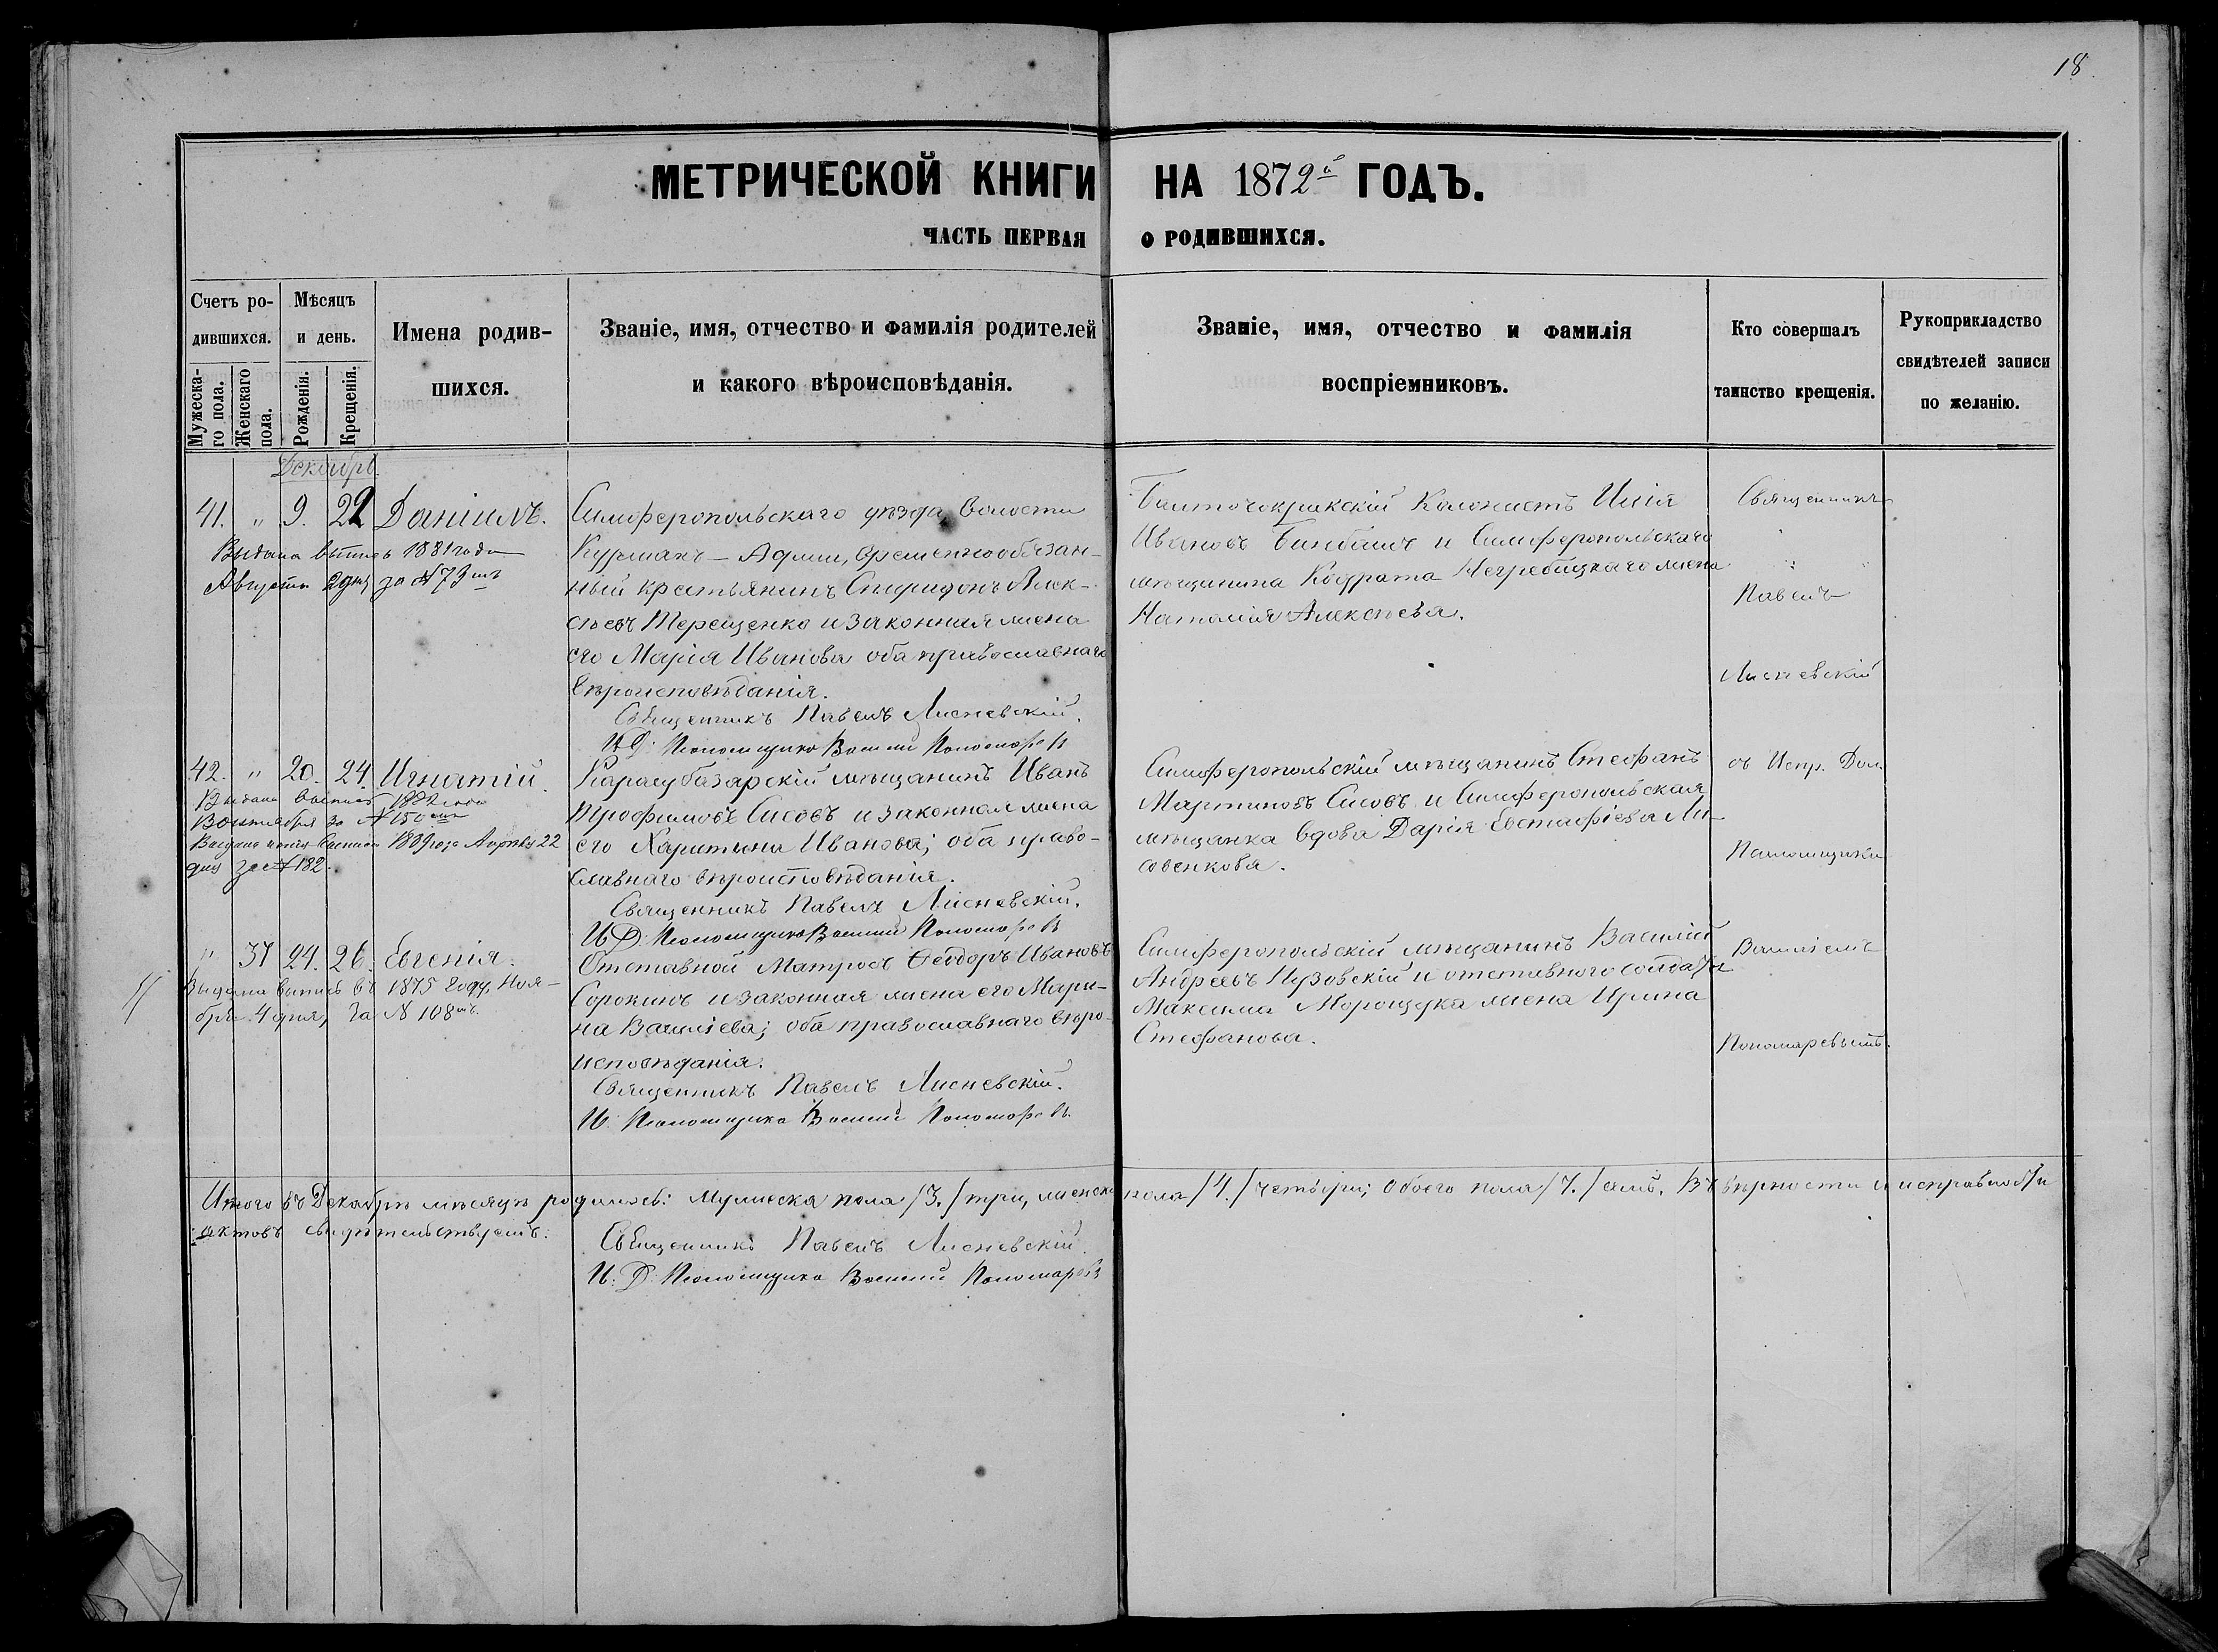 18.
МЕТРИЧЕСКОЙ КНИГИ НА 1872й ГОДЪ.
ЧАСТЬ ПЕРВАЯ О РОДИВШИХСЯ.
Счетъ ро-
дившихся.
Мужеска-
го пола.
Женскаго
пола.
Мѣсяцъ
и день.
Рожденія.
Крещенія.
Имена родив-
шихся.
Званіе, имя, отчество и фамилія родителей
и какого вѣроисповѣданія.
Званіе, имя, отчество и фамилія
воспріемниковъ.
Кто совершалъ
таинство крещенія.
Рукоприкладство
свидѣтелей записи
по желанію.
Декабрь.
41. " 9. 22 Даніилъ.
Выдана выпись 1881 года
Августа 2 дня за № 73мъ
Симферопольскаго уѣзда, волости
Курманъ-Аджи, временнообязан-
ный крестьянинъ Спиридонъ Алек-
сѣевъ Терещенко и законная жена
его Марія Иванова оба православнаго
вѣроисповѣданія.
Священникъ Павелъ Лисневскій.
И Д: Помощника Василій Пономаревъ
колонистъ Илія
Ивановъ и Симферопольскаго
мѣщанина Кодрата Негребицкаго жена
Наталія Алексѣева.
Священникъ
Павелъ
Лисневскій
42. " 20. 24. Игнатій.
Выдана выпись 1882 года
за № 150
Выдана выпись 1889 года Апрѣля 22
дня за № 182.
Карасубазарскій мѣщанинъ Иванъ
Трофимовъ Сисовъ и законная жена
его Харитина Иванова; оба право-
славнаго вѣроисповѣданія.
Священникъ Павелъ Лисневскій.
И Д: Помощника Василій Пономаревъ
Симферопольскій мѣщанинъ Стефанъ
Мартиновъ Сисовъ и Симферопольская
мѣщанка вдова Дарія Евстафіева Ли-
совенкова.
съ Испр. Дол.
Помощника
" 37 24. 26. Евгенія.
Выдана выпись въ 1875 году, Ноя-
бря 4 дня, за № 108мъ.
Отставной Матросъ Ѳеодоръ Ивановъ
Сорокинъ и законная жена его Мари-
на Василіева; оба православнаго вѣро-
исповѣданія.
Священникъ Павелъ Лисневскій.
И: Помощника Василій Пономаревъ
Симферопольскій мѣщанинъ Василій
Андреевъ Пузовскій и отставного солдата
Максима жена Ирина
Стефанова.
Василіемъ
Пономаревымъ.
Итого въ Декабрѣ мѣсяцѣ родилось: Мужеска пола /3./ три, женска пола /4./ четыри; обоего пола /7./ семь. Въ вѣрности и исправности
актовъ свидѣтельствуемъ:
Священникъ Павелъ Лисневскій.
И: Д: Помощника Василій Пономаревъ